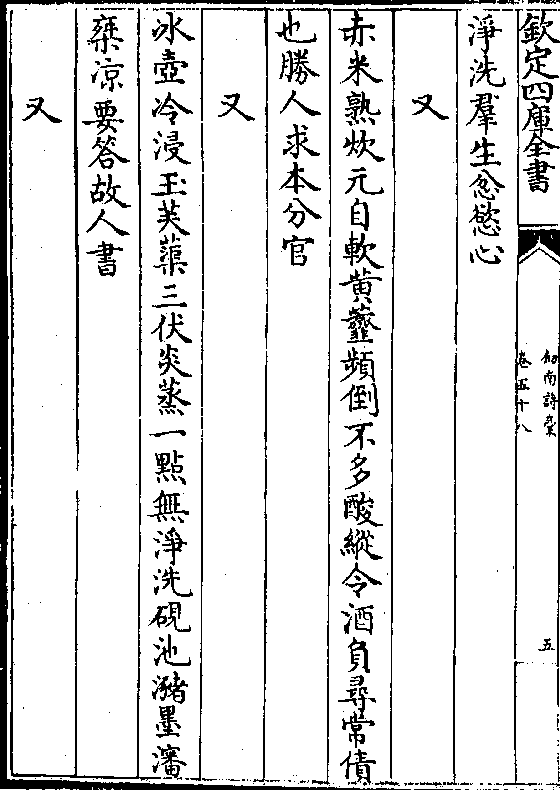 欽定四庫全書
劍南詩稾
卷五十八
五
淨洗羣生忿慾心
又
赤米熟炊元自軟黄虀頻倒不多酸縱令酒負尋常債
也勝人求本分官
又
冰壺冷浸玉芙蕖三伏炎蒸一點無淨洗硯池瀦墨瀋
椉凉要答故人書
又